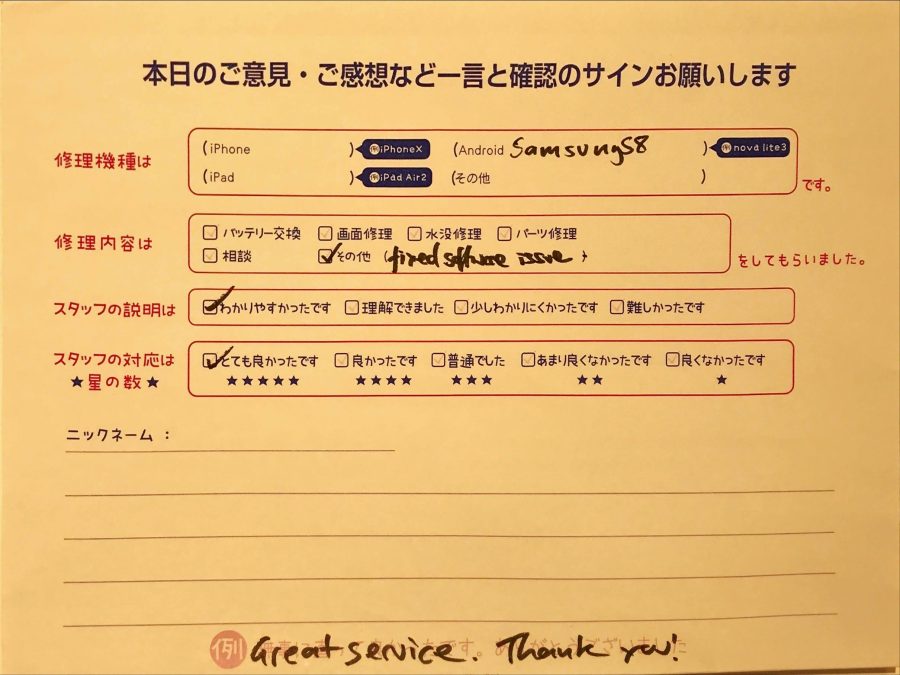 本日のご意見・ご感想など一言と確認のサインお願いします
修理機種は
(iPhone ) 例iPhoneX (Android SamsungS8 ) 例nova lite3
(iPad ) 例iPad Air2 (その他 )
です。
修理内容は
バッテリー交換 画面修理 水没修理 パーツ修理
相談 その他 (fixed software issue )
をしてもらいました。
スタッフの説明は
わかりやすかったです 理解できました 少しわかりにくかったです 難しかったです
スタッフの対応は
★星の数★
とても良かったです 良かったです 普通でした あまり良くなかったです 良くなかったです
★★★★★ ★★★★ ★★★ ★★ ★
ニックネーム：
例 ありがとうございました
Great service. Thank you!